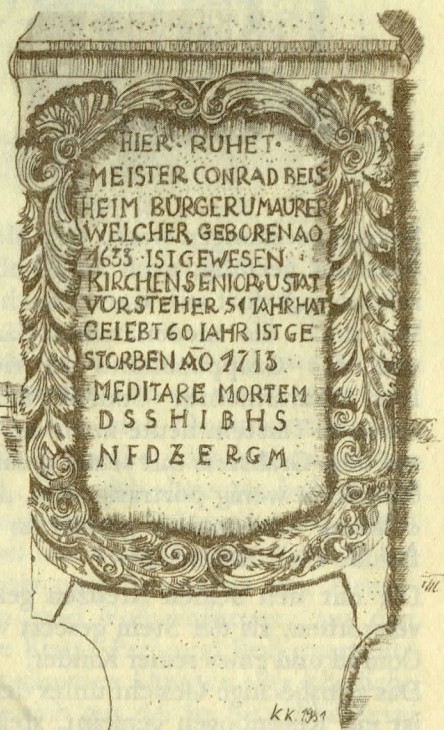 HIER · RUHET ·
MEISTER CONRAD BEIS
HEIM BÜRGER U MAURER
WELCHER GEBOREN AO
1633 IST GEWESEN
KIRCHENSENIOR U STAT
VORSTEHER 51 IAHR HAT
GELEBT 60 IAHR IST GE
STORBEN AO 1713
MEDITARE MORTEM
D S S H I B H S
N F D Z E R G M
KK. 1931